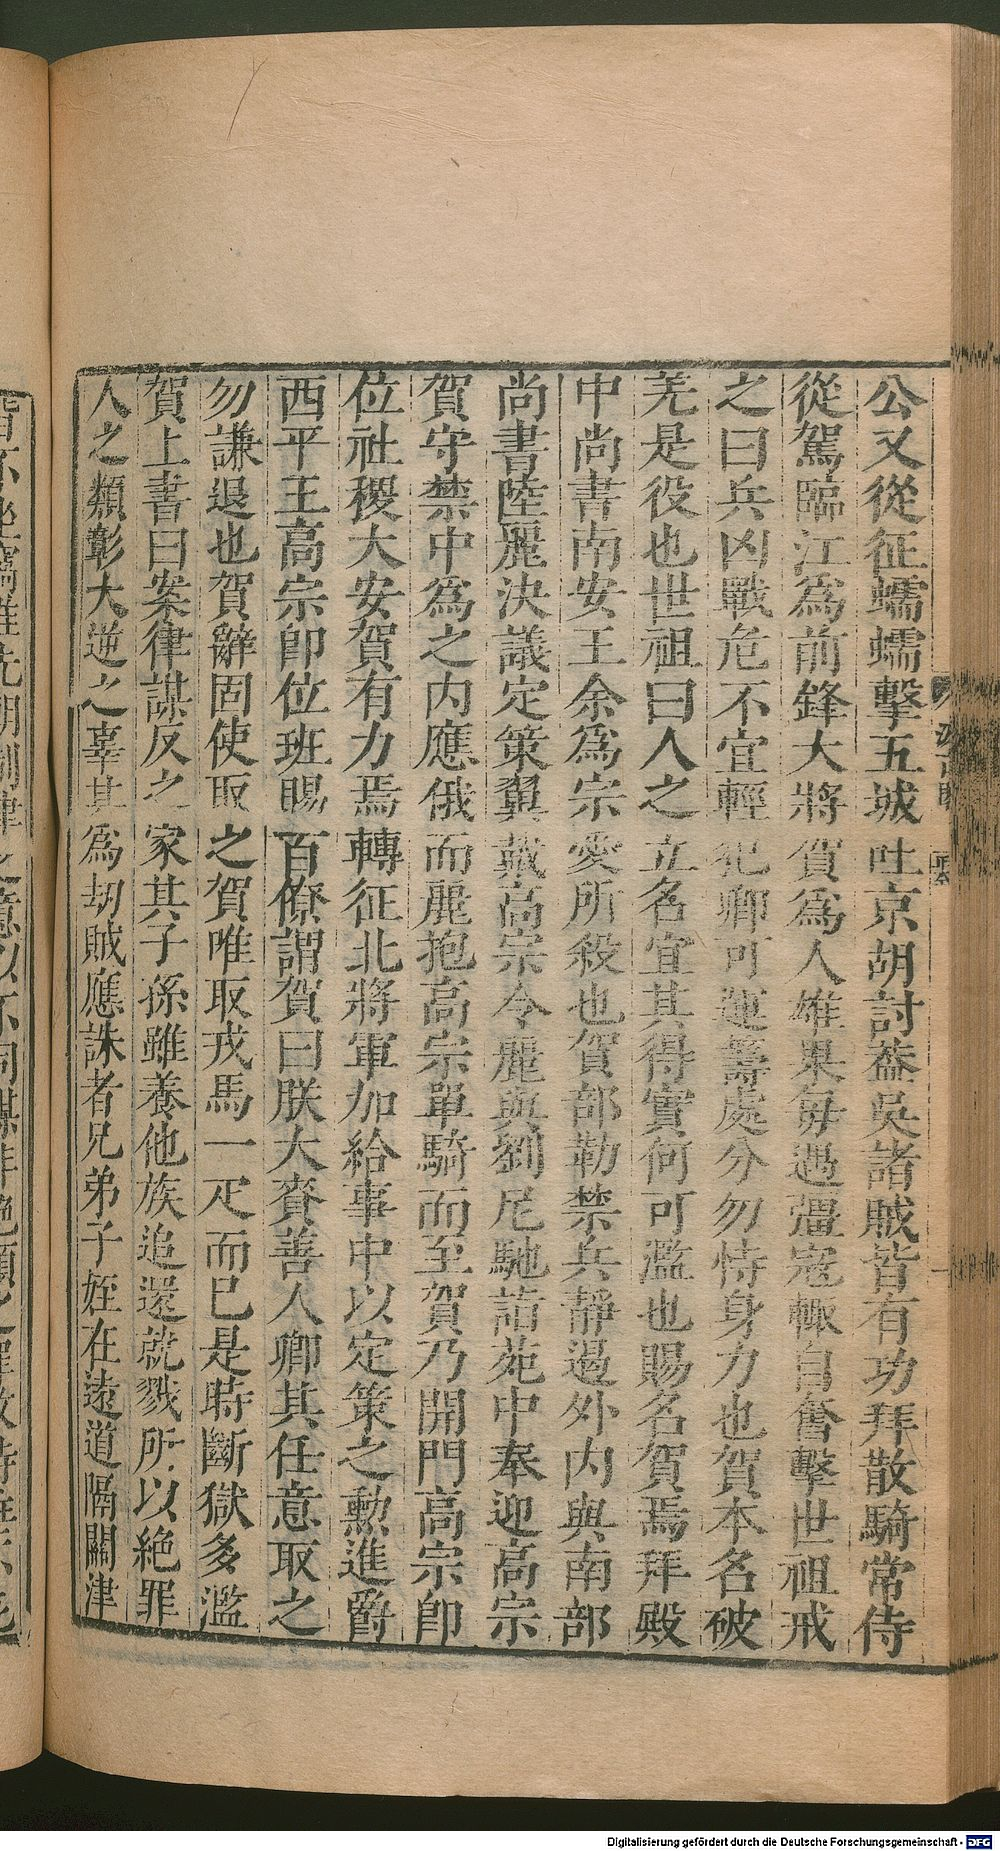 公又從征蠕蠕擊五城吐京胡討蓋吳諸賊皆有功拜散騎常侍
從駕臨江為前鋒大將賀為人雄果每遇彊寇輙自奮擊世祖戒
之曰兵凶戰危不宜輕犯卿可運籌處分勿恃身力也賀本名破
羌是役也世祖曰人之立名宜其得實何可濫也賜名賀焉拜殿
中尚書南安王余為宗愛所殺也賀部勒禁兵靜遏外内與南部
尚書陸麗決議定策翼戴高宗令麗與劉尼馳詣苑中奉迎高宗
賀守禁中為之内應俄而麗抱高宗單騎而至賀乃開門高宗即
位社稷大安賀有力焉轉征北將軍加給事中以定策之勳進爵
西平王高宗即位班賜百僚謂賀曰朕大賚善人卿其任意取之
勿謙退也賀辭固使取之賀唯取戎馬一疋而已是時斷獄多濫
賀上書曰案律謀反之家其子孫雖養他族追還就戮所以絶罪
人之類彰大逆之辜其為劫賊應誅者兄弟子姪在遠道隔關津
Digitalisierung gefördert durch die Deutsche Forschungsgemeinschaft - DFG